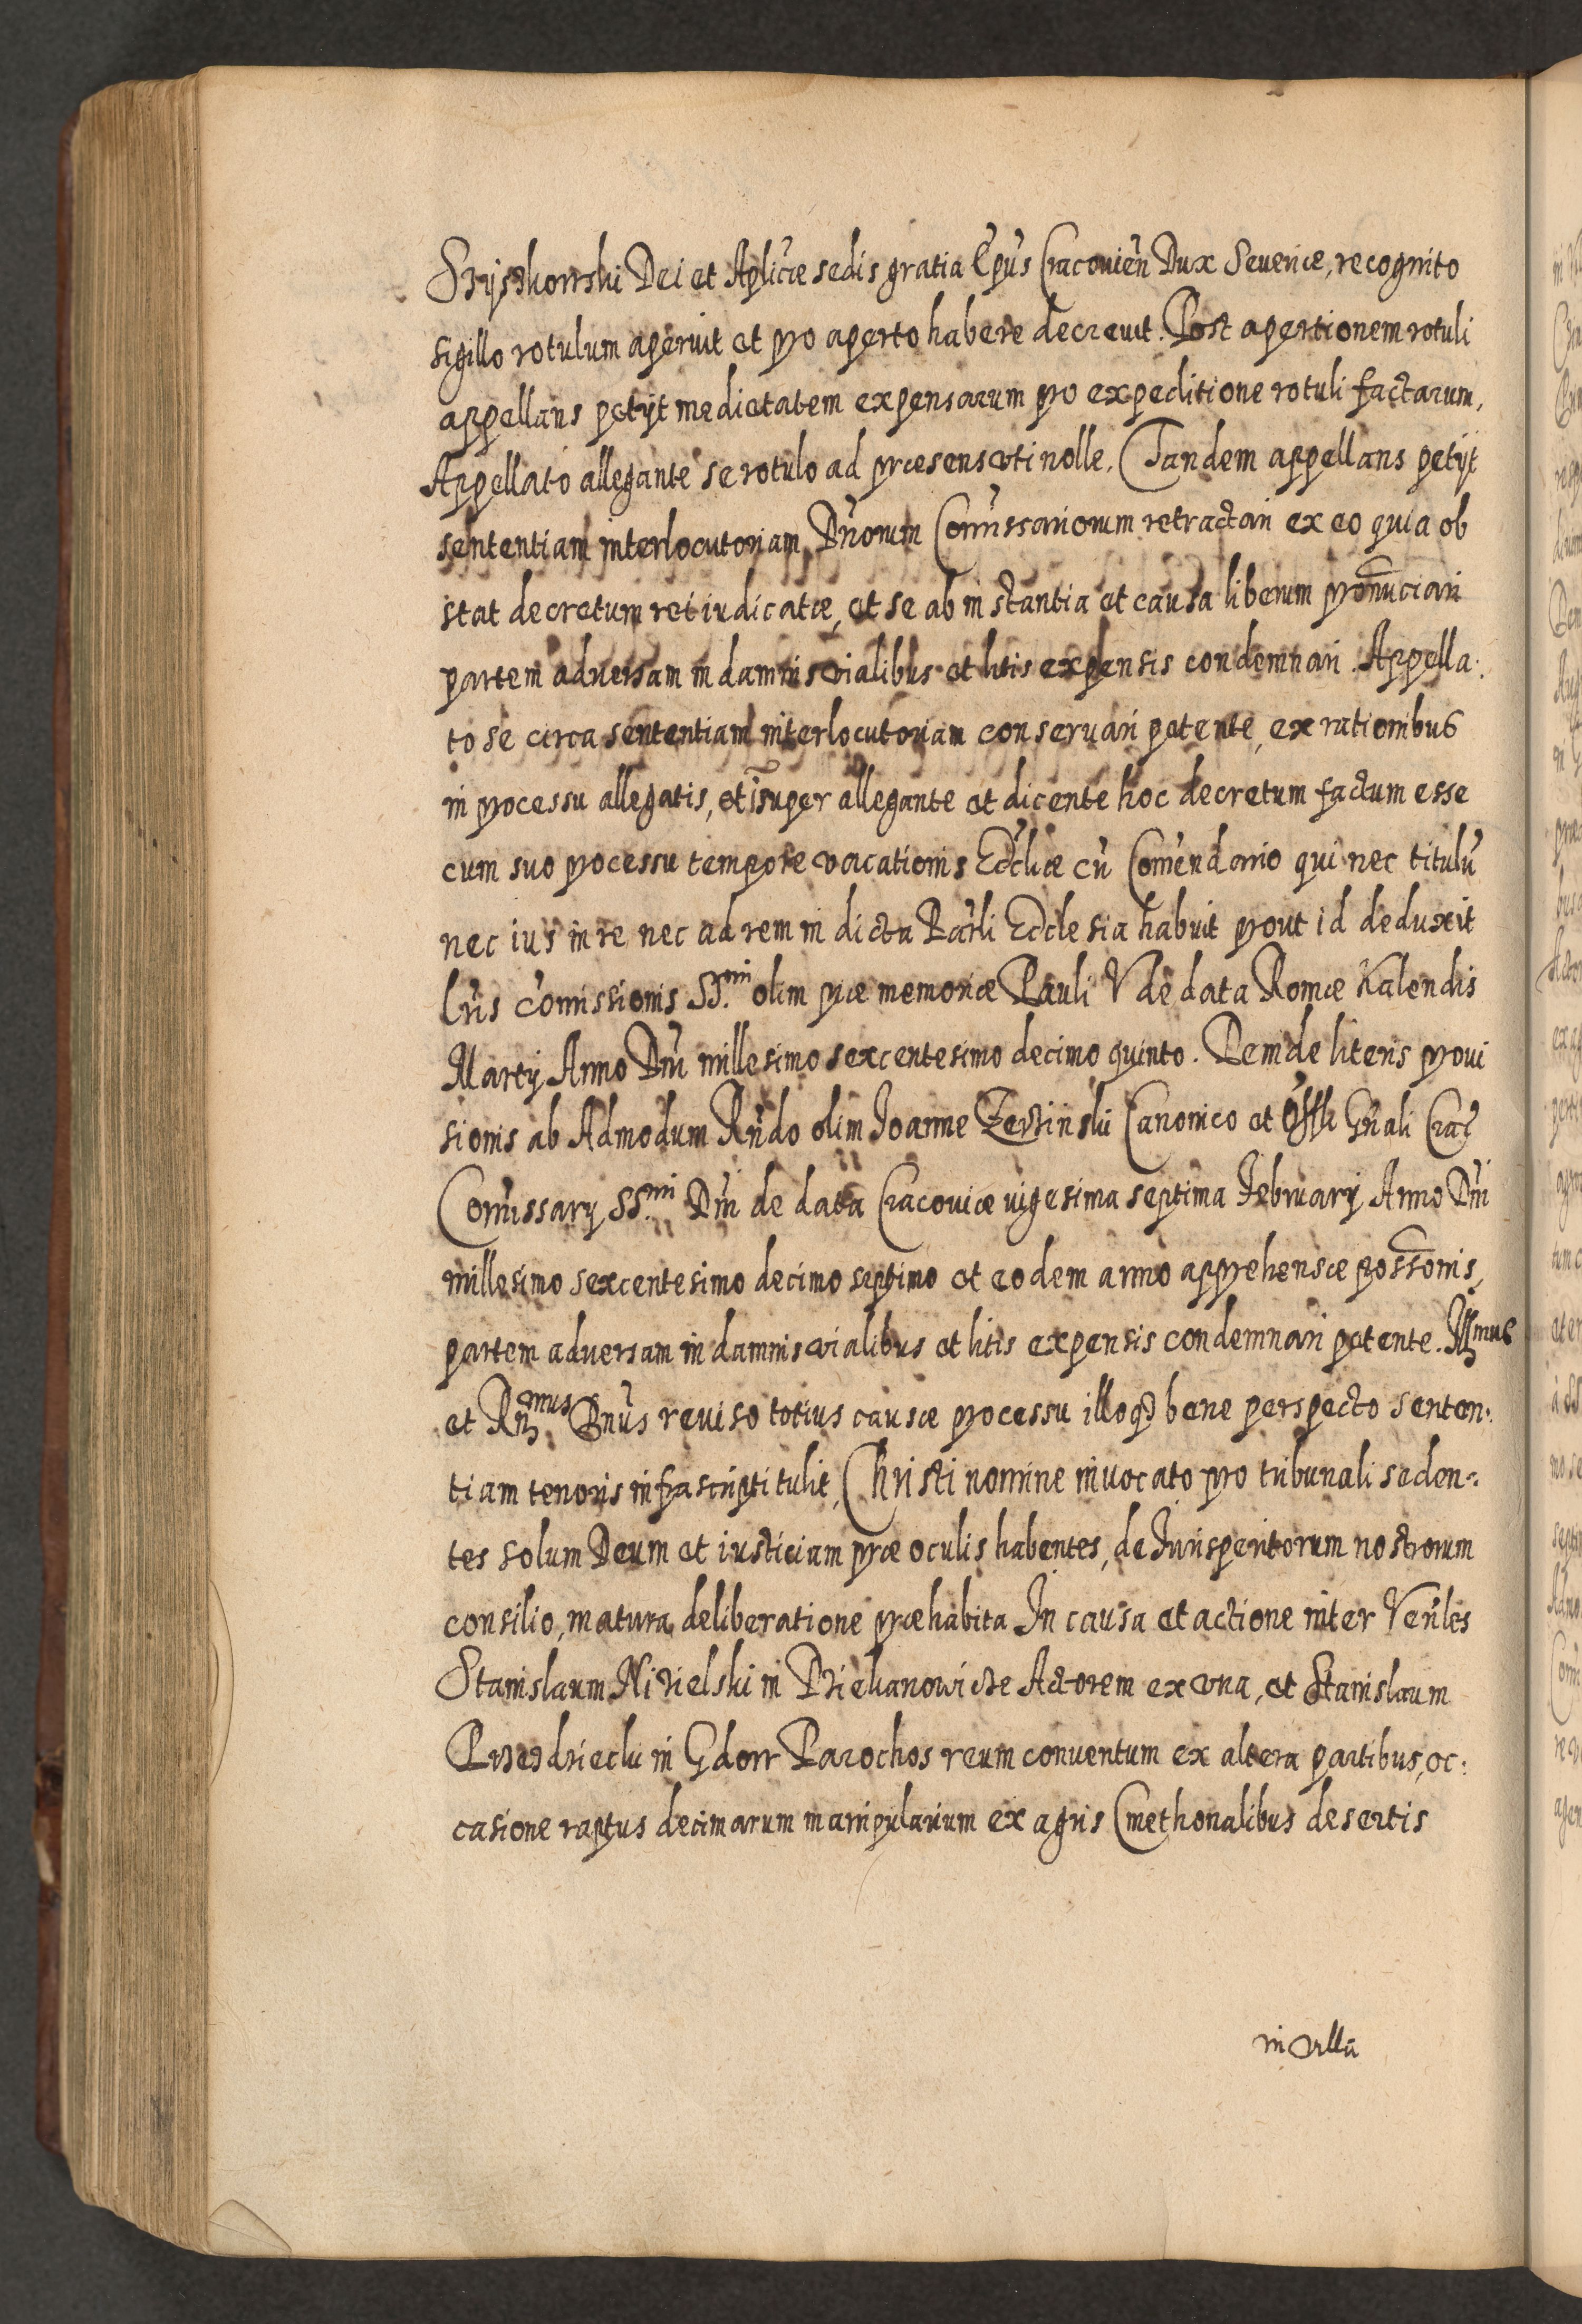 Szyszkowski Dei et Aplicæ sedis gratia Epũs Cracovieñ Dux Severiæ, recognito
sigillo rotulum aperuit et pro aperto habere decrevit. Post apertionem rotuli
appellans petÿt medietatem expensarum pro expeditione rotuli factarum,
Appellato allegante se rotulo ad præsens uti nolle. Tandem appellans petÿt
sententiam interlocutoriam Dñorum Comissariorum retractari ex eo quia ob
stat decretum rei iudicatæ, et se ab instantia et causa liberum pronũciari
partem adversam in damnis vialibus et litis expensis condemnari. Appella.
to se circa sententiam interlocutoriam conservari petente, ex rationibus
in processu allegatis, et ĩsuper allegante et dicente hoc decretum factum esse
cum suo processu tempore vacationis Ecclĩæ cũ Comendario qui nec titulũ
nec ius in re nec ad rem in dicta Parli Ecclesia habuit prout id deduxit
Lris comissionis SS.mi olim piæ memoriæ Pauli V de data Romæ Kalendis
Martÿ Anno Dñi millesimo sexcentesimo decimo quinto. Demde literis provi
sionis ab Admodum Rñdo olim Joanne Zerzinski Canonico et Offli Gñali Crac
Comissarÿ SS.mi Dñi de data Cracoviæ vigesima septima Februarÿ Anno Dñi
millesimo sexcentesimo decimo septimo et eodem anno apprehensæ possonis,
partem adversam in damnis vialibus et litis expensis condemnari petente. Illmus
et Rñdmus Dnũs reviso totius causæ processu illoq3 bene perspecto senten.
tiam tenoris infrascripti tulit, Christi nomine invocato pro tribunali seden.
tes solum Deum et iusticiam præ oculis habentes, de Jurisperitorum nostrorum
consilio, matura deliberatione præhabita In causa et actione inter Veñles
Stanislaum Nizielski in Biechanowicze Actorem ex una, et Stanislaum
in Gdow Parochos reum conventum ex altera partibus, oc.
casione raptus decimarum manipularium ex agris Cmethonalibus desertis
in villa